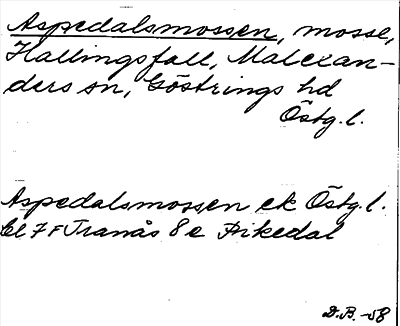 Aspedalsmossen, mosse,
Hallingsfall, Malexan-
ders sn, Göstrings hd
Östg. l.
Aspedalsmossen ek Östg. l.
bl 7 F Tranås 8 e Pikedal
D.B. -58